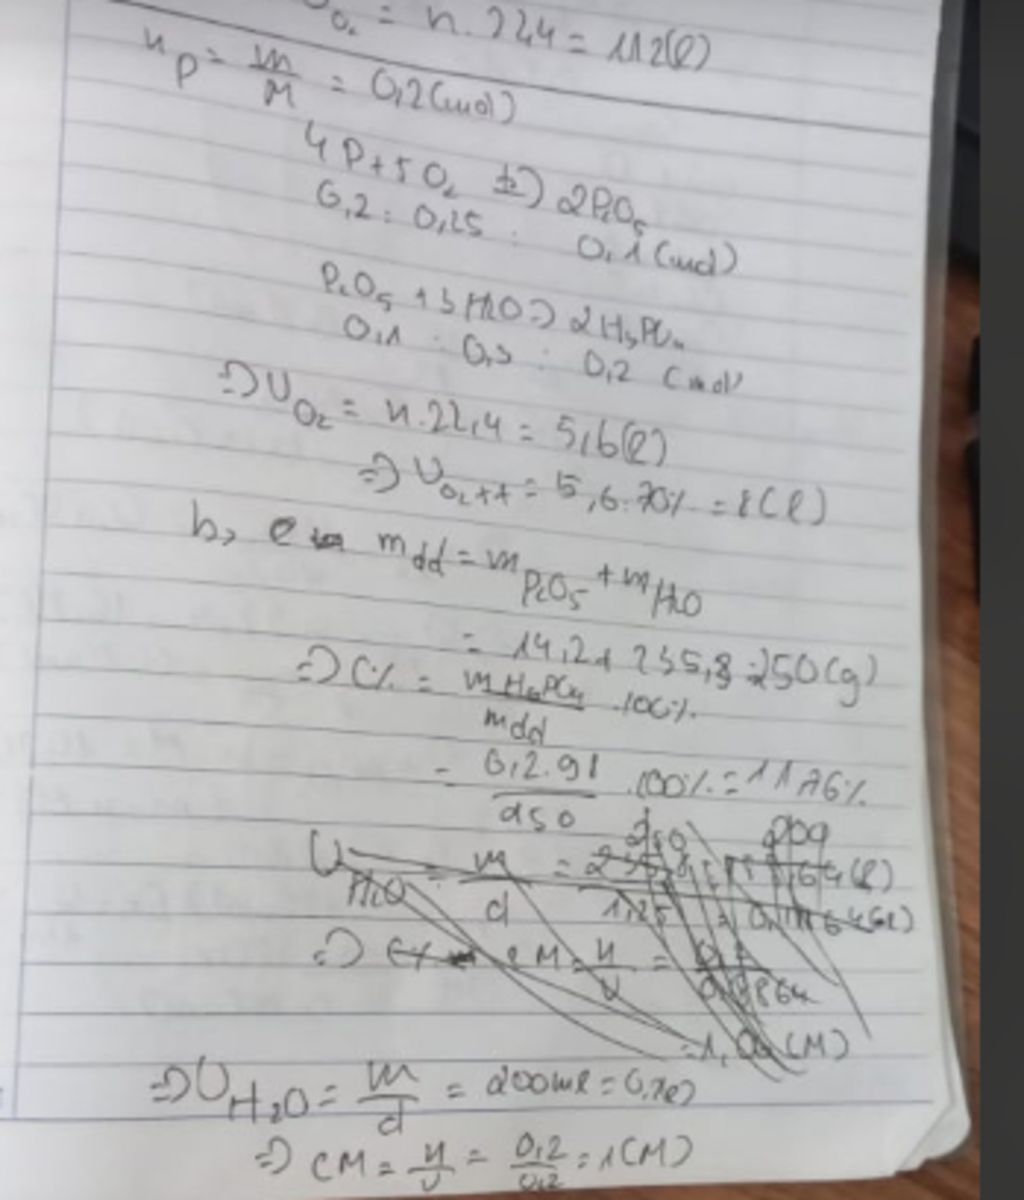 O₂ = n.22,4 = 112(l)
nP = m/M = 0,2(mol)
4P + 5O₂ t°) 2P₂O₅
0,2 : 0,25 : 0,1(mol)
P₂O₅ + 3H₂O => 2H₃PO₄
0,1 : 0,3 : 0,2 (mol)
=> VO₂ = n.22,4 = 5,6(l)
=> VO₂tt = 5,6.70% = 8(l)
b, mdd = mP₂O₅ + mH₂O
= 14,2 + 235,8 = 250(g)
=> C% = mH₃PO₄/mdd .100%
= 0,2.98/250 .100% = 11,76%
250 200
VH₂O = m/d =
1,25
=> CM = n/V =
(M)
=> VH₂O = m/d = 200ml = 0,2(l)
=> CM = n/V = 0,2/0,2 = 1(M)